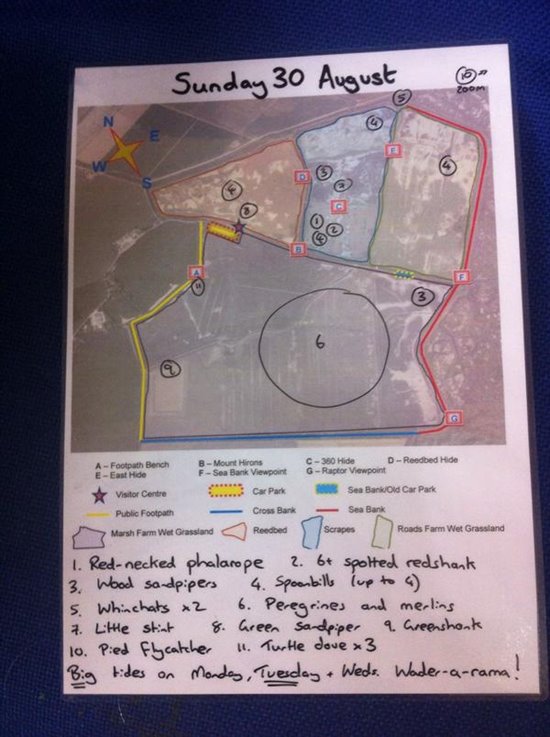 Sunday 30 August
10"
200m
N
E
W
S
5
4
4
3
2
D
E
4
8
C
1
2
4
B
A
11
F
3
6
9
G
A – Footpath Bench B – Mount Hirons C – 360 Hide D – Reedbed Hide
E – East Hide F – Sea Bank Viewpoint G – Raptor Viewpoint
Visitor Centre Car Park Sea Bank/Old Car Park
Public Footpath Cross Bank Sea Bank
Marsh Farm Wet Grassland Reedbed Scrapes Roads Farm Wet Grassland
1. Red-necked phalarope 2. 6+ spotted redshank
3. Wood sandpipers 4. Spoonbills (up to 4)
5. Whinchats x2 6. Peregrines and merlins
7. Little stint 8. Green sandpiper 9. Greenshank
10. Pied Flycatcher 11. Turtle dove x3
Big tides on Monday, Tuesday + Weds. Wader-a-rama!